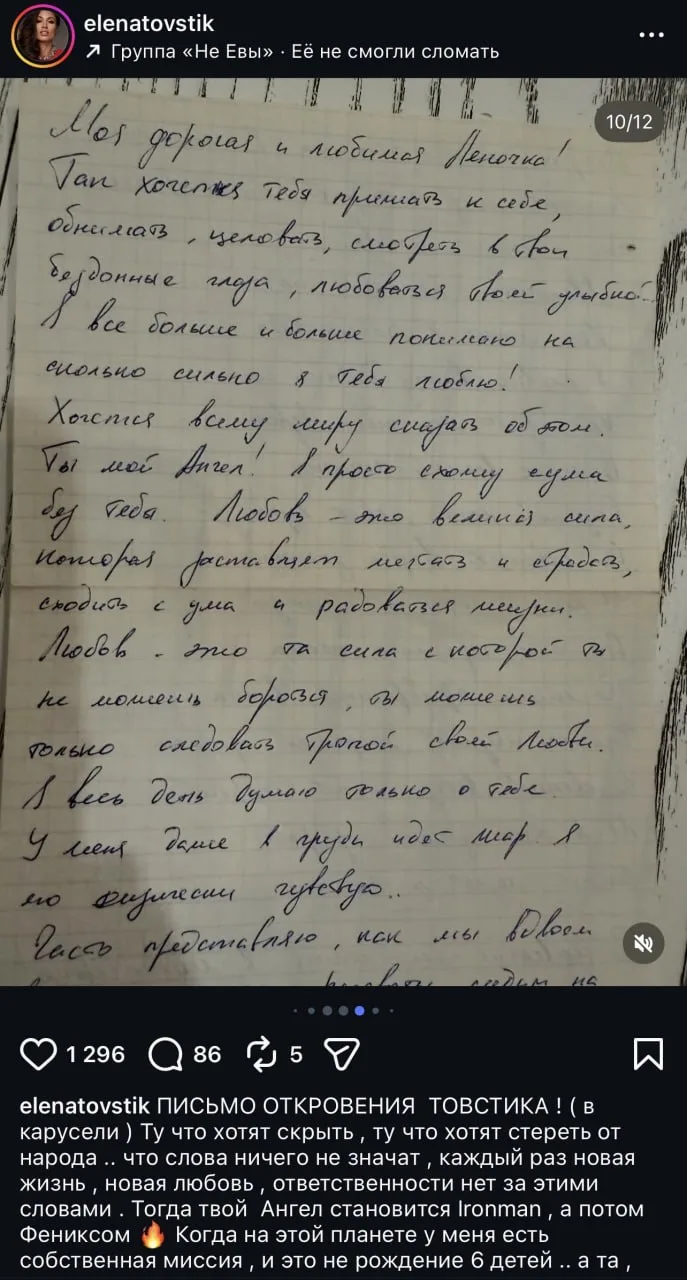 elenatovstik
Группа «Не Евы» · Её не смогли сломать
10/12
Моя дорогая и любимая Леночка!
Так хочется тебя прижать к себе,
обнимать, целовать, смотреть в твои
бездонные глаза, любоваться твоей улыбкой..
Я все больше и больше понимаю на
сколько сильно я тебя люблю!
Хочется всему миру сказать об этом.
Ты мой Ангел! Я просто схожу сума
без тебя. Любовь – это великая сила,
которая заставляет мечтать и страдать,
сходить с ума и радоваться жизни.
Любовь – это та сила с которой ты
не можешь бороться, ты можешь
только следовать тропой своей любви.
Я весь день думаю только о тебе
У меня даже в груди идет жар. Я
его физически чувствую..
Часто представляю, как мы вдвоем
сидим на
1 296
86
5
elenatovstik ПИСЬМО ОТКРОВЕНИЯ ТОВСТИКА ! ( в
карусели ) Ту что хотят скрыть , ту что хотят стереть от
народа .. что слова ничего не значат , каждый раз новая
жизнь , новая любовь , ответственности нет за этими
словами . Тогда твой Ангел становится Ironman , а потом
Фениксом 🔥 Когда на этой планете у меня есть
собственная миссия , и это не рождение 6 детей .. а та ,